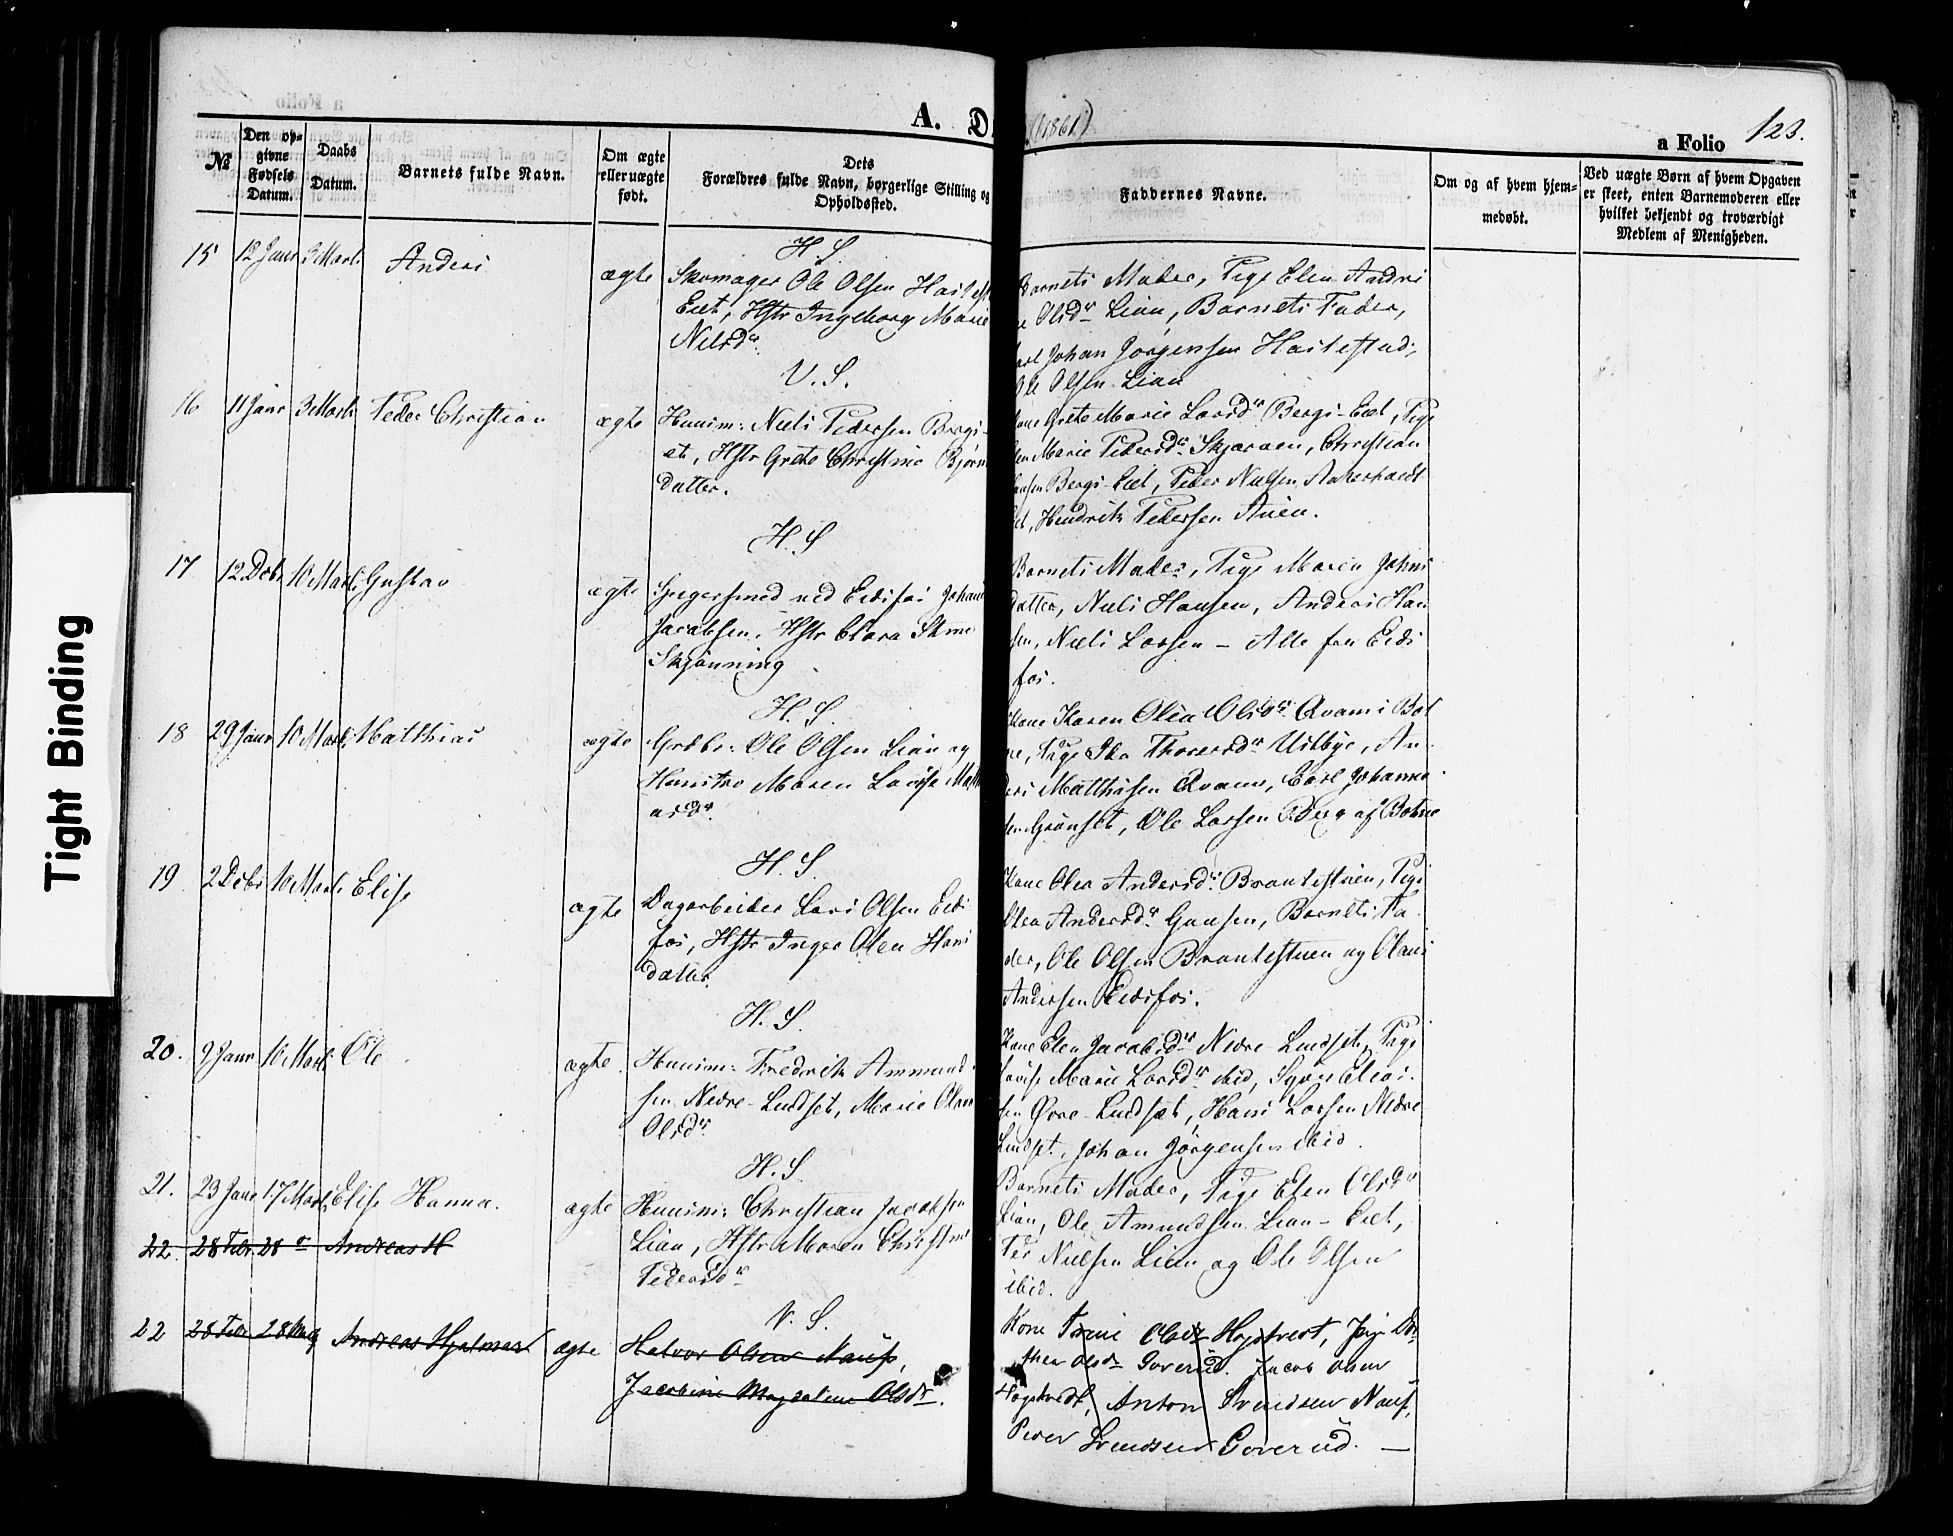 a Folio
A. D
(1861)
a Folio 123.
№
Den op-
givne
Fødsels
Datum.
Daabs
Datum.
Barnets fulde Navn.
Om ægte
eller uægte
født.
Dets
Forældres fulde Navn, borgerlige Stilling og
Opholdssted.
Faddernes Navne.
Om og af hvem hjem-
medøbt.
Ved uægte Børn af hvem Opgaven
er skeet, enten Barnemoderen eller
hvilket bekjendt og troværdigt
Medlem af Menigheden.
H. S.
15 12 Janr 3 Marts Anders ægte
Skomager Ole Olsen
Eiet, Hstr Ingeborg Marie
Nilsdr
Barnets Moder, Pige Elen Andri
Olsdr Lian, Barnets Fader,
Johan Jørgensen
Ole Olsen Lian
V. S.
16 11 Janr 3 Marts Peder Christian ægte
Huusm: Niels Pedersen Bergs-
et, Hstr Grete Christine Bjørn
datter.
Kone Grete Marie Larsdr Bergs-Eiet, Pige
Marie Pedersdr Skjeraen, Christian
Bergs-Eiet, Peder Nielsen
Hendrik Pedersen
H. S
17 12 Debr 10 Marts Gustav ægte
Spigersmed ved Eidsfos Johan
Jacobsen, Hstr Clara
Skjønning
Barnets Moder, Pige Maren Johns
datter, Niels Hansen, Anders Han
sen, Niels Larsen – Alle fra Eids
fos.
H. S.
18 29 Janr 10 Marts Matthias ægte
Grdbr: Ole Olsen Lian og
Hustro Maren Lovise Matth
asdr.
Kone Karen Olea Olsdr Qvams i Bot
ne, Pige Ida Thoresdr Uldbye, An
ders Matthisen Qvams, Carl Johanne
sen Grønset, Ole Larsen Berg af Botne
H. S.
19. 2 Debr 10 Marts Elise ægte
Dagarbeider Lars Olsen Eids
fos, Hstr Inger Olea Hans
datter.
Kone Olea Andersdr Brantestuen, Pige
Olea Andersdr Gunsen, Barnets Fa
der, Ole Olsen Brantestuen og Olaus
Andersen Eidsfos.
H. S.
20. 9 Janr 10 Marts Ole ægte.
Huusm: Fredrik Ammund
sen Nedre-Lindset, Marie
Olsdr
Kone Elen Jacobsdr Nedre-Lindset, Pige
Lovise Marie Larsdr ibid, Syver Elias
sen Øvre-Lindset, Hans Larsen Nedre
Lindset, Johan Jørgensen ibid.
H. S
21. 23 Janr 17 Marts Elise Hanna. ægte
Huusm: Christian Jacobsen
Lian, Hstr Maren Christine
Pedersdr
Barnets Moder, Pige Elen Olsdr
Lian, Ole Amundsen Lian-Eiet,
Nielsen Lian og Ole Olsen
ibid.
22 28 Febr 28 Andreas H
V. S.
22 28 Febr 28 Andreas Hjalmar ægte
Halvor Olsen Naufs,
Jacobine Magdalene Olsdr.
Kone Olsdr Høgtvedt, Pige Dor
thea Olsdr Goverud. Jacob Olsen
Høgtvedt, Anton Svendsen Naufs,
Peder Svendsen Goverud. —
Tight Binding